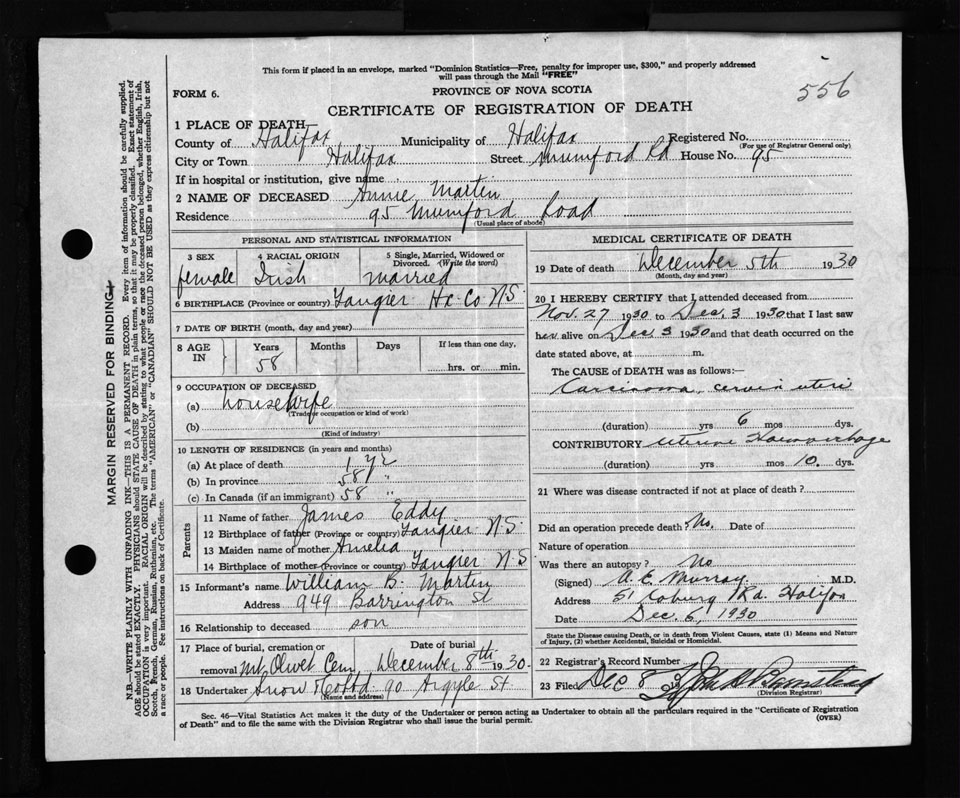 This form if placed in an envelope, marked "Dominion Statistics—Free, penalty for improper use, $300," and properly addressed
will pass through the Mail "FREE"
556
FORM 6.
PROVINCE OF NOVA SCOTIA
CERTIFICATE OF REGISTRATION OF DEATH
1 PLACE OF DEATH
County of Halifax Municipality of Halifax Registered No.
(For use of Registrar General only)
City or Town Halifax Street Mumford Rd House No. 95
If in hospital or institution, give name
2 NAME OF DECEASED Annie Martin
Residence 95 Mumford Road
(Usual place of abode)
PERSONAL AND STATISTICAL INFORMATION
3 SEX 4 RACIAL ORIGIN 5 Single, Married, Widowed or Divorced. (Write the word)
female Irish married
6 BIRTHPLACE (Province or country) Tangier Hx Co N.S.
7 DATE OF BIRTH (month, day and year)
8 AGE IN Years Months Days If less than one day,
58 hrs. or min.
9 OCCUPATION OF DECEASED
(a) housewife
(Trade, occupation or kind of work)
(b)
(Kind of industry)
10 LENGTH OF RESIDENCE (in years and months)
(a) At place of death 1 yr
(b) In province 58 "
(c) In Canada (if an immigrant) 58 "
Parents
11 Name of father James Eddy
12 Birthplace of father (Province or country) Tangier N.S
13 Maiden name of mother Amelia
14 Birthplace of mother (Province or country) Tangier N S
15 Informant's name William B. Martin
Address 949 Barrington St
16 Relationship to deceased son
17 Place of burial, cremation or Date of burial
removal Mt Olivet Cem, December 8th 1930
18 Undertaker Snow & Co Ltd 90 Argyle St.
(Name and address)
MEDICAL CERTIFICATE OF DEATH
19 Date of death December 5th 1930
(Month, day and year)
20 I HEREBY CERTIFY that I attended deceased from
Nov. 27 1930 to Dec. 3 1930 that I last saw
her alive on Dec 3 1930 and that death occurred on the
date stated above, at m.
The CAUSE of DEATH was as follows:
Carcinoma, cervix uteri
(duration) yrs 6 mos dys.
CONTRIBUTORY Uterine Haemorrhage
(duration) yrs mos 10. dys.
21 Where was disease contracted if not at place of death?
Did an operation precede death? No. Date of
Nature of operation
Was there an autopsy? No
(Signed) A. E. Murray. M.D.
Address 51 Coburg Rd. Halifax
Date Dec. 6, 1930
State the Disease causing Death, or in death from Violent Causes, state (1) Means and Nature
of Injury, (2) whether Accidental, Suicidal or Homicidal.
22 Registrar's Record Number
23 Filed Dec 8 30
(Division Registrar)
Sec. 46—Vital Statistics Act makes it the duty of the Undertaker or person acting as Undertaker to obtain all the particulars required in the "Certificate of Registration
of Death" and to file the same with the Division Registrar who shall issue the burial permit.
(OVER)
MARGIN RESERVED FOR BINDING
N.B.—WRITE PLAINLY WITH UNFADING INK—THIS IS A PERMANENT RECORD. Every item of information should be carefully supplied.
AGE should be stated EXACTLY. PHYSICIANS should STATE CAUSE OF DEATH in plain terms, so that it may be properly classified. Exact statement of
OCCUPATION is very important. RACIAL ORIGIN will be described by stating to what people or race the deceased person belonged, whether English, Irish,
Scotch, French, German, Russian, Ruthenian, etc. The terms "AMERICAN" or "CANADIAN" SHOULD NOT BE USED as they express citizenship but not
a race or people. See instructions on back of Certificate.